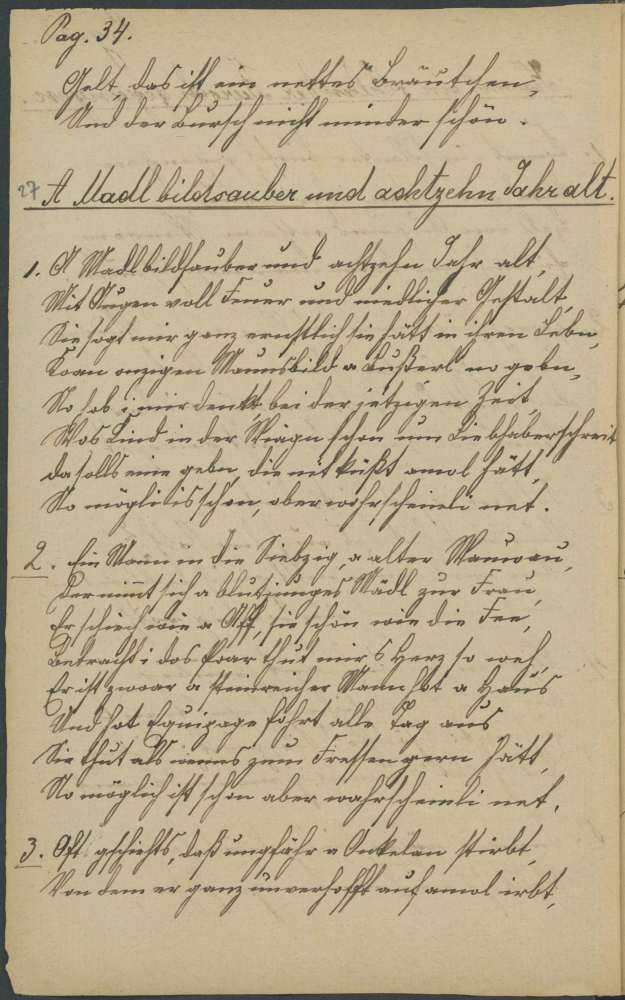 Pag. 34.
Gelt, das ist ein nettes Bräutchen,
Und der Bursch nicht minder schön.
27 A Madl bildsauber und achtzehn Jahr alt.
1. A Madl bildsauber und achtzehn Jahr alt,
Mit Augen voll Feuer und niedlicher Gestalt,
Die sagt mir ganz ernstlich sie hätt in ihren Lebn,
Koan anzigen Mannsbild a Bußerl no gebn,
No hob i mir denkt, bei der jetzigen Zeit,
Wos Kind in der Wiagn schon um Liebhaber schreit
da solls eine gebn, die nit küßt amol hätt,
No mögli is schon, aber wahrscheinli net.
2. Ein Mann in die Siebzig, a alter Wauwau,
Der nimt sich a blutjunges Mädl zur Frau,
Er schiech wie a Aff, sie schön wie die Fee,
Betracht i das Paar thut mir s Herz so weh,
Er ist zwaar a steinreicher Mann hat a Haus
Und hat Equipage fährt alle Tag aus
Sie thut als wenns zum Fressen gern hätt,
No möglich ist schon aber wahrscheinli net.
3. Oft gschiehts, daß ungfähr a Onkel an stirbt,
Von dem er ganz unverhofft auf amol irbt,